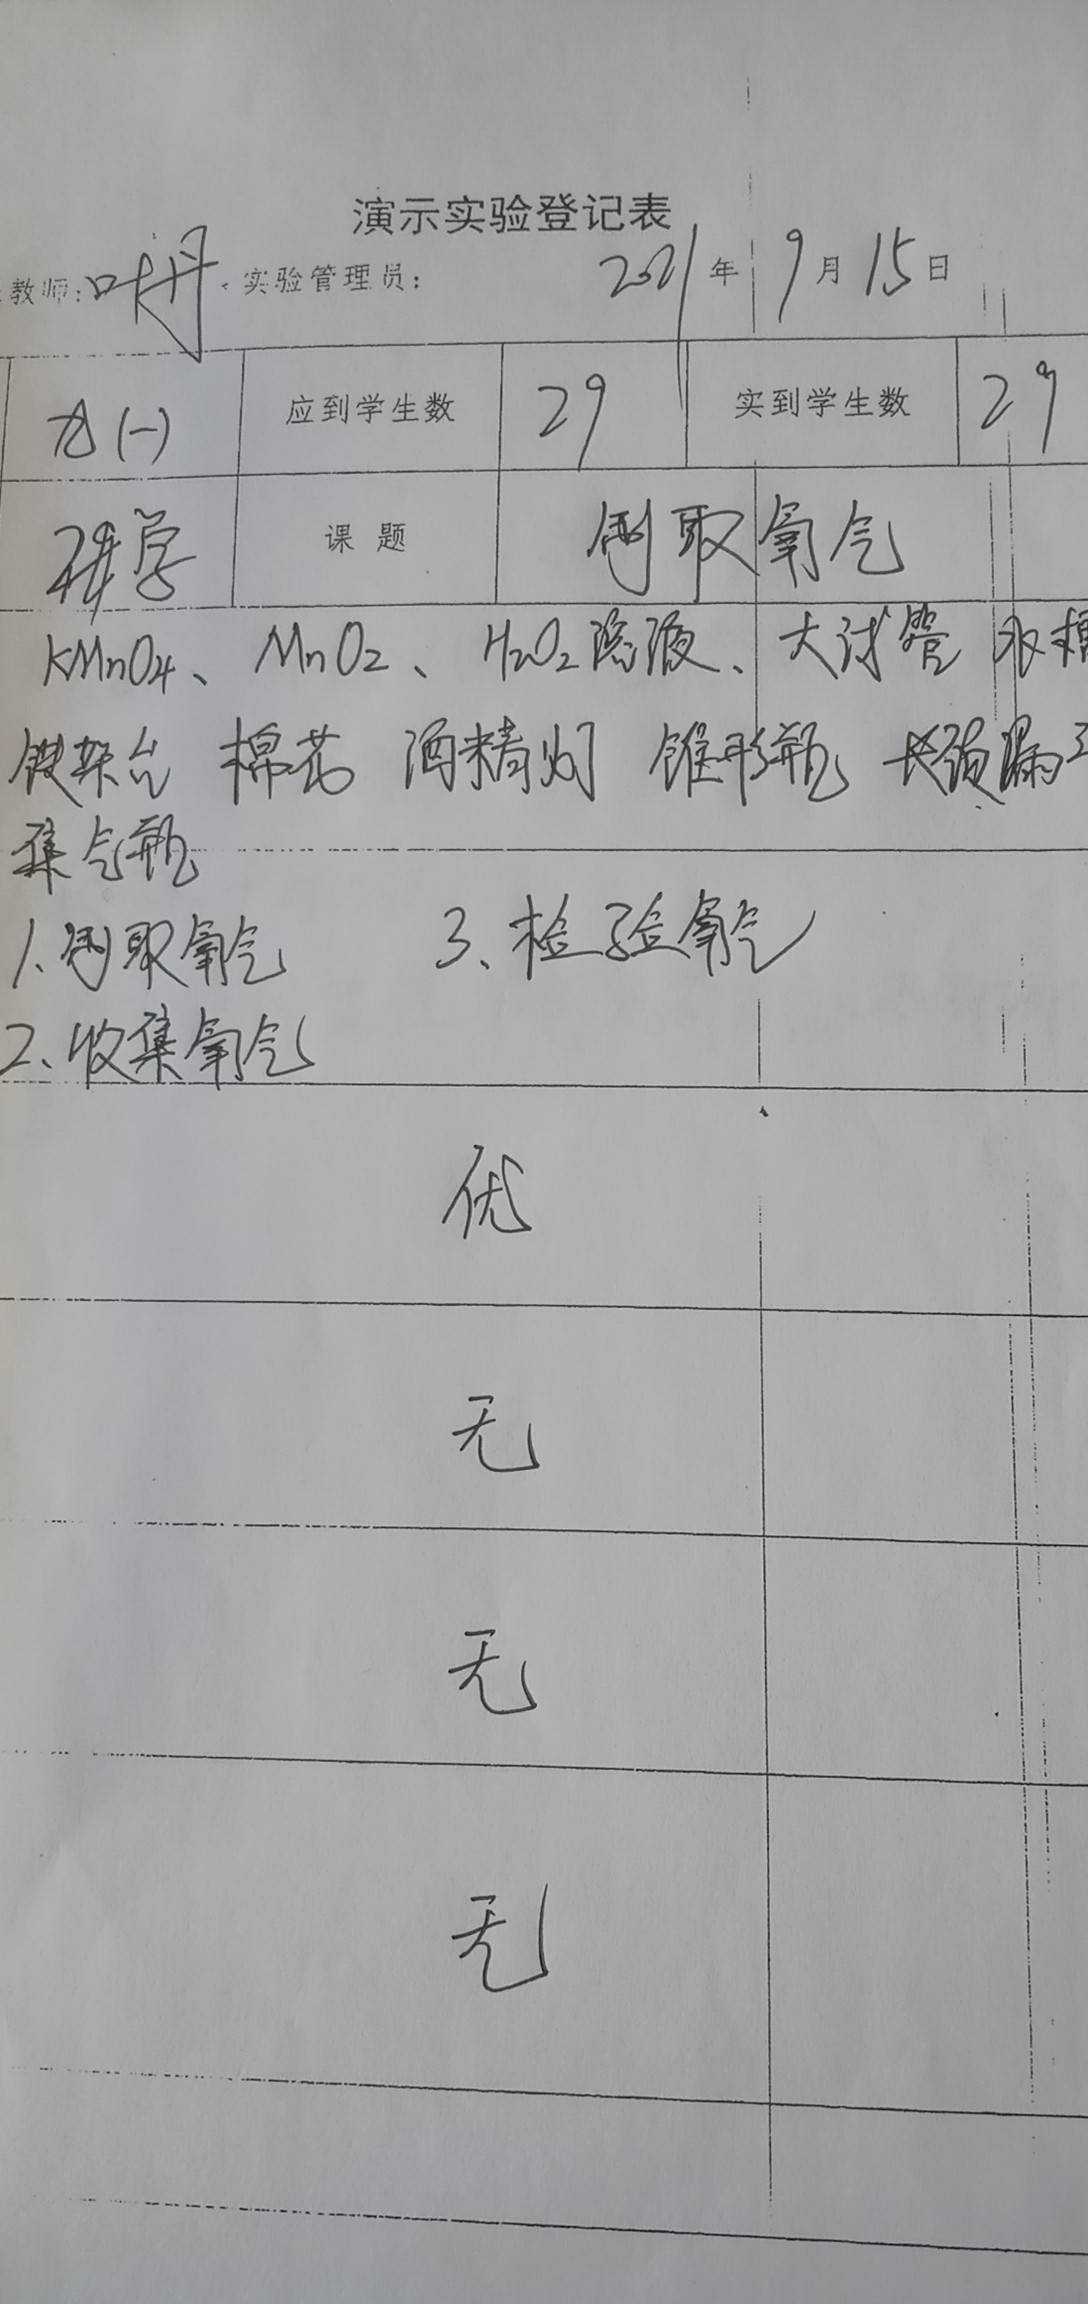 演示实验登记表
教师:叶丹 实验管理员: 2021年9月15日
九(一) 应到学生数 29 实到学生数 29
科学 课题 制取氧气
KMnO4、MnO2、H2O2溶液、大试管 水槽
铁架台 棉花 酒精灯 锥形瓶 长颈漏
集气瓶
1.制取氧气 3、检验氧气
2、收集氧气
优
无
无
无